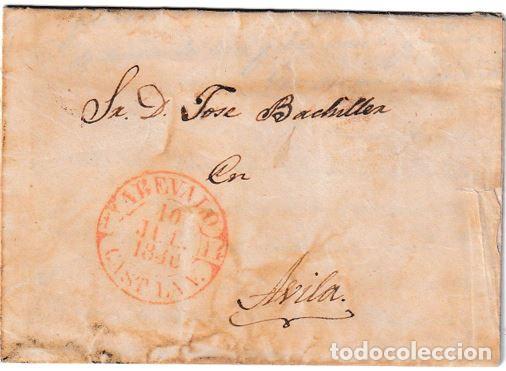 Sr. D. Jose Bachiller
En
10
JUL.
1846
CAST. LA V.
Avila.
todocoleccion
todocoleccion.net